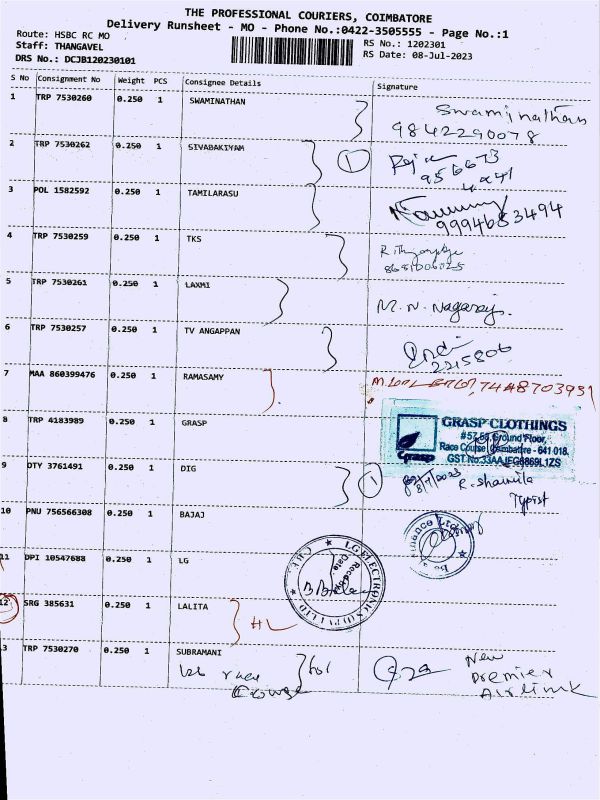 THE PROFESSIONAL COURIERS, COIMBATORE
Delivery Runsheet - MO - Phone No.:0422-3505555 - Page No.:1
Route: HSBC RC MO
RS No.: 1202301
Staff: THANGAVEL
RS Date: 08-Jul-2023
DRS No.: DCJB120230101
S No Consignment No Weight PCS Consignee Details Signature
1 TRP 7530260 0.250 1 SWAMINATHAN Swaminathan
9842290078
2 TRP 7530262 0.250 1 SIVABAKIYAM 1
956673
3 POL 1582592 0.250 1 TAMILARASU
9994683494
4 TRP 7530259 0.250 1 TKS
5 TRP 7530261 0.250 1 LAXMI M. N. Nagaraj.
6 TRP 7530257 0.250 1 TV ANGAPPAN
2215806
7 MAA 860399476 0.250 1 RAMASAMY
8 TRP 4183989 0.250 1 GRASP
GRASP CLOTHINGS
Ground Floor,
Race Course Coimbatore - 641 018.
Grasp
9 DTY 3761491 0.250 1 DIG 1
Typist
10 PNU 756566308 0.250 1 BAJAJ
11 DPI 10547688 0.250 1 LG
LG ELECTRONICS
12 SRG 385631 0.250 1 LALITA HL
3 TRP 7530270 0.250 1 SUBRAMANI
race
Course
New
Premier
Airlink